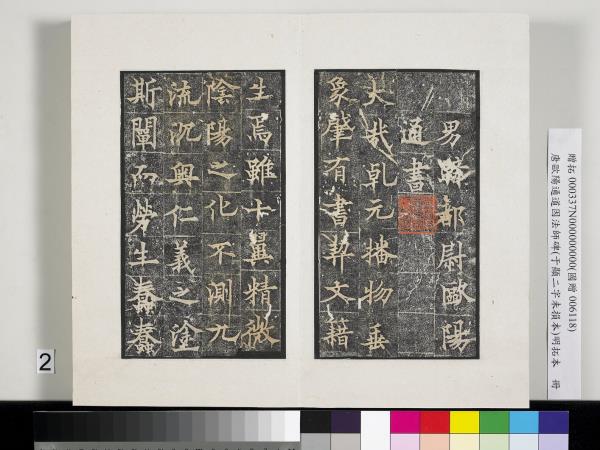 男騎都尉歐陽
通書
大哉乾元播物垂
象肇有書契文籍
生焉雖十翼精微
陰陽之化不測九
流沉奧仁義之塗
斯闡而勞生蠢蠢
贈拓 000337N000000000(國贈 006118)
唐歐陽通道因法師碑(于顯二字未損本)明拓本 冊
2